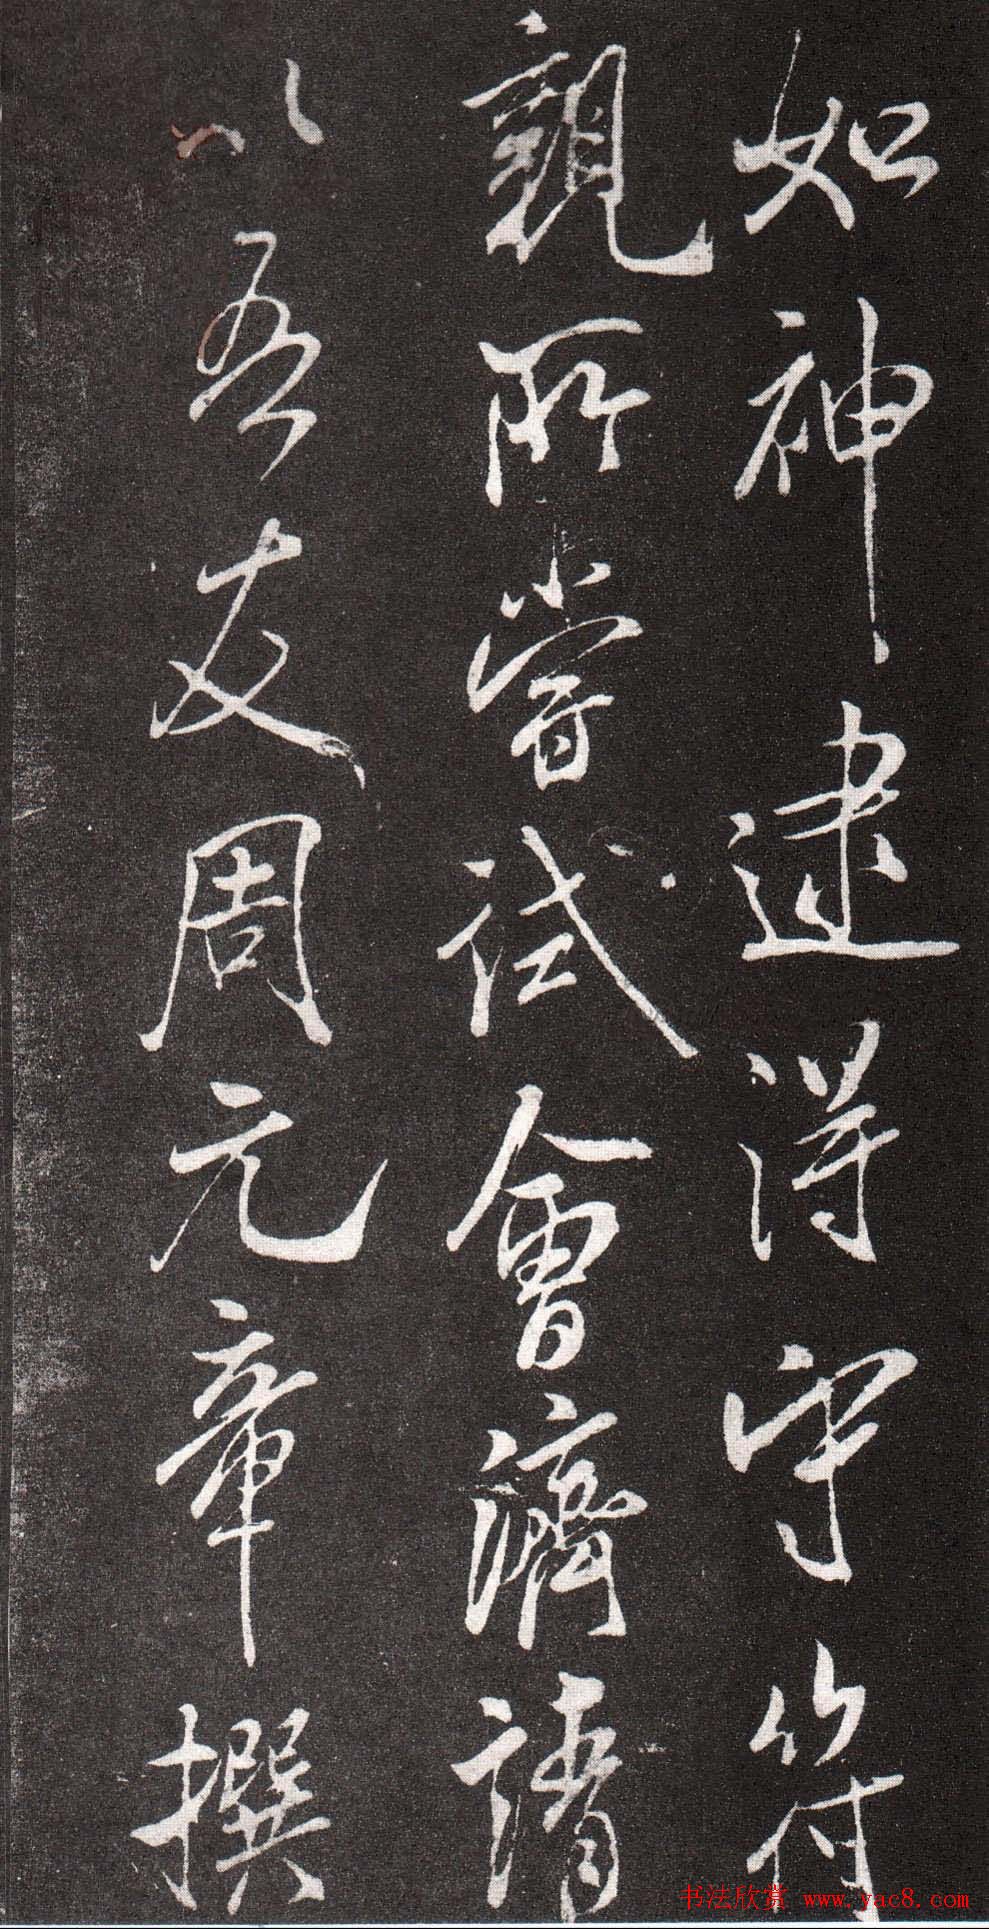 如神逮得守符
親所嘗試會濟請
以吾友周元章撰
书法欣赏 www.yac8.com